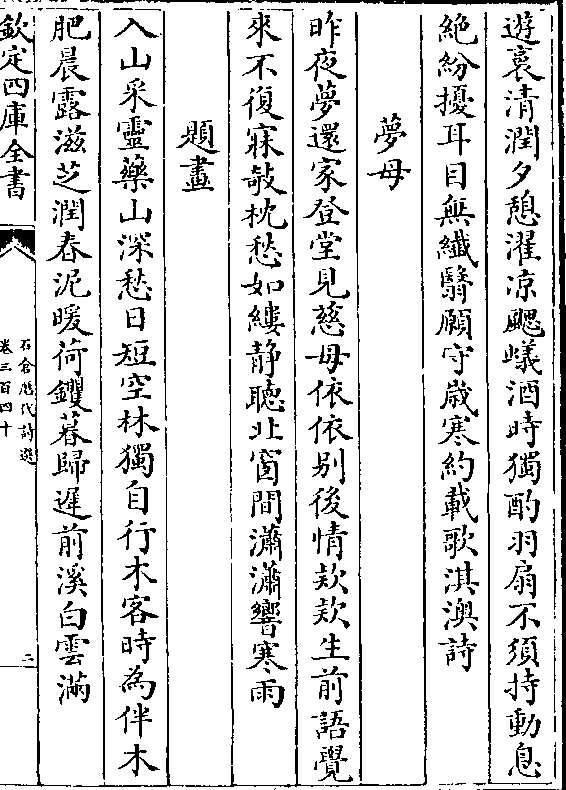 遊裛清潤夕憩濯凉颸㠖酒時獨酌羽扇不須持動息
絶紛擾耳目無纎翳願守歳寒約載歌淇澳詩
夢母
昨夜夢還家登堂見慈母依依别後情欵欵生前語覺
來不復寐敧枕愁如縷静聽北窗間瀟瀟響寒雨
題畫
入山采靈藥山深愁日短空林獨自行木客時為伴木
肥晨露滋芝潤春泥暖荷钁暮歸遲前溪白雲滿
欽定四庫全書
石倉厯代詩選
卷三百四十
二